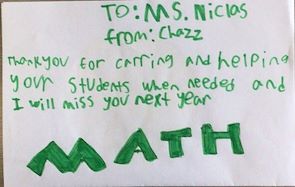 TO: MS. Niclas
from: Chazz
Thankyou for carring and helping
your students when needed and
I will miss you next year
MATH